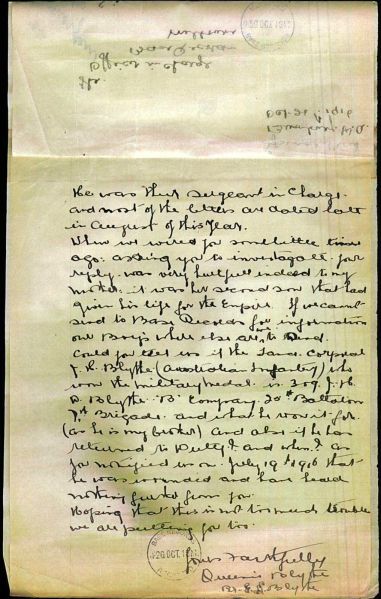 He was then Sergeant in Charge.
and most of the letters are dated back
in August of this Year.
When we wired you some little time
ago. asking you to investigate. your
reply. was very hurtfull indeed to my
Mother. it was her second son that had
given his life for the Empire. If we cannot
send to Base Records for information
our Boys where else are to send.
Could you tell us if the Lance Corporal
J. R. Blythe (Australian Infantry) who
won the Military Medal. is 309. J. R.
Blythe. B. Company. 20th Battalion
Brigade. and what he won it for
(as he is my brother) and also if he has
returned to Duty? and when? as
you notified us on. July 19th 1916 that
he was wounded and have heard
nothing further from you.
Hoping that this is not too much trouble
we are putting you too.
Yours Faithfully
Queenie Blythe
Blythe
Officer in Charge
Base Records
Melbourne
OCT